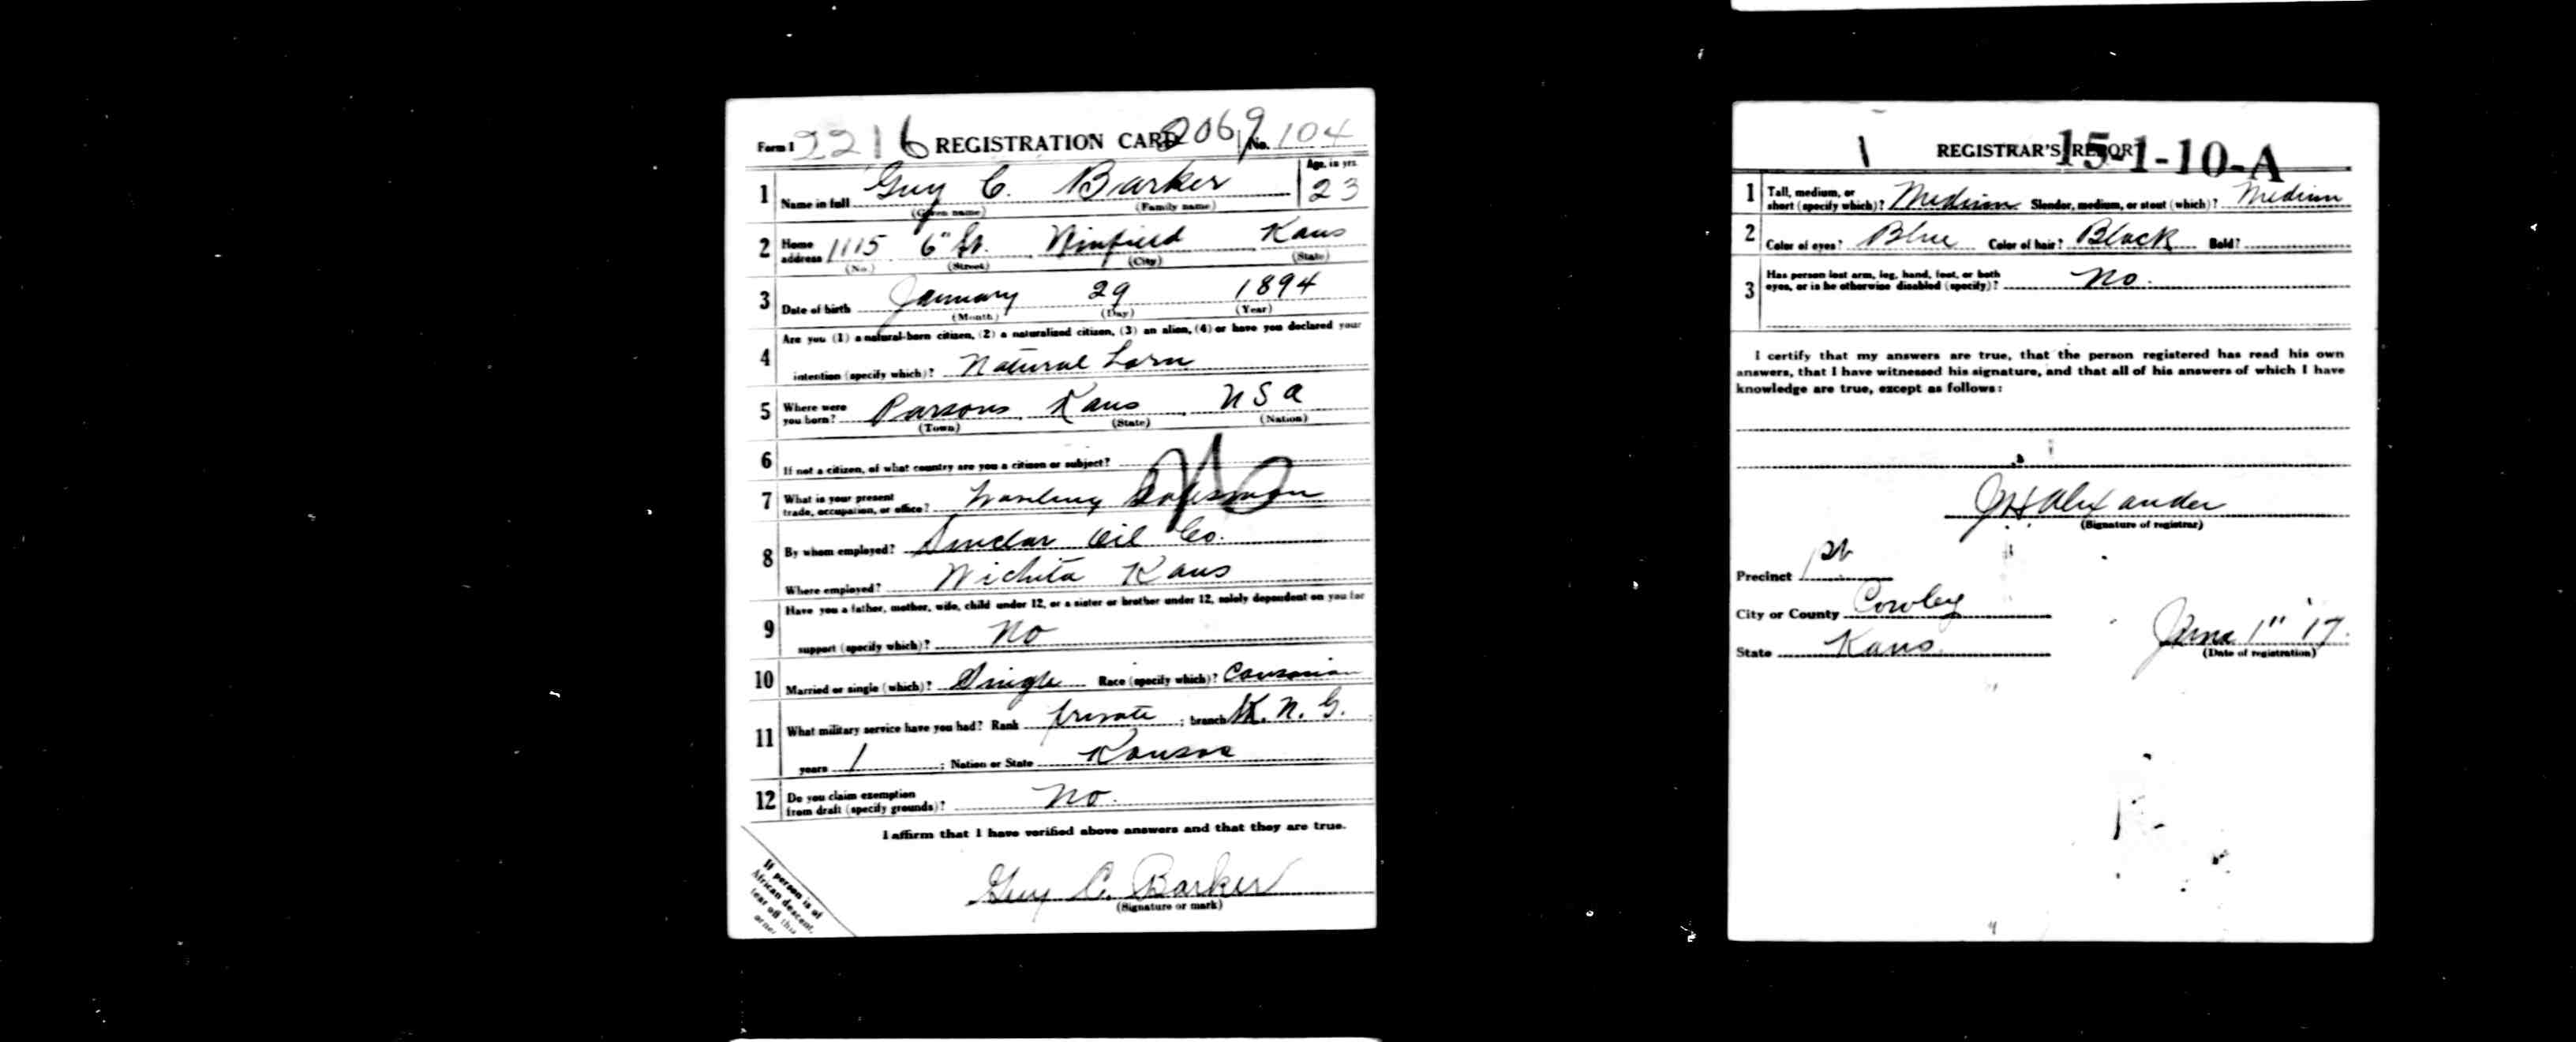 Form 1 2216 REGISTRATION CARD 2069 No. 104
1 Name in full Guy C. Barker Age, in yrs. 23
(Given name) (Family name)
2 Home address 1115 6" St. Winfield Kans
(No.) (Street) (City) (State)
3 Date of birth January 29 1894
(Month) (Day) (Year)
Are you (1) a natural-born citizen, (2) a naturalized citizen, (3) an alien, (4) or have you declared your
4 intention (specify which)? Natural born
5 Where were you born? Parsons Kans USA
(Town) (State) (Nation)
6 If not a citizen, of what country are you a citizen or subject?
7 What is your present trade, occupation, or office? Salesman
8 By whom employed? Sinclar Oil Co.
Where employed? Wichita Kans
Have you a father, mother, wife, child under 12, or a sister or brother under 12, solely dependent on you for
9 support (specify which)? No
10 Married or single (which)? Single Race (specify which)?
11 What military service have you had? Rank private ; branch K. N. G. ;
years 1 ; Nation or State Kansas
12 Do you claim exemption from draft (specify grounds)? No.
I affirm that I have verified above answers and that they are true.
Guy C. Barker
(Signature or mark)
If person is of
African descent,
tear off this
corner
REGISTRAR'S REPORT 15-1-10-A
1 Tall, medium, or short (specify which)? Medium Slender, medium, or stout (which)? Medium
2 Color of eyes? Blue Color of hair? Black Bald?
3 Has person lost arm, leg, hand, foot, or both eyes, or is he otherwise disabled (specify)? No.
I certify that my answers are true, that the person registered has read his own
answers, that I have witnessed his signature, and that all of his answers of which I have
knowledge are true, except as follows:
J H Alexander
(Signature of registrar)
Precinct 1st
City or County Cowley
State Kans. June 1" 17.
(Date of registration)